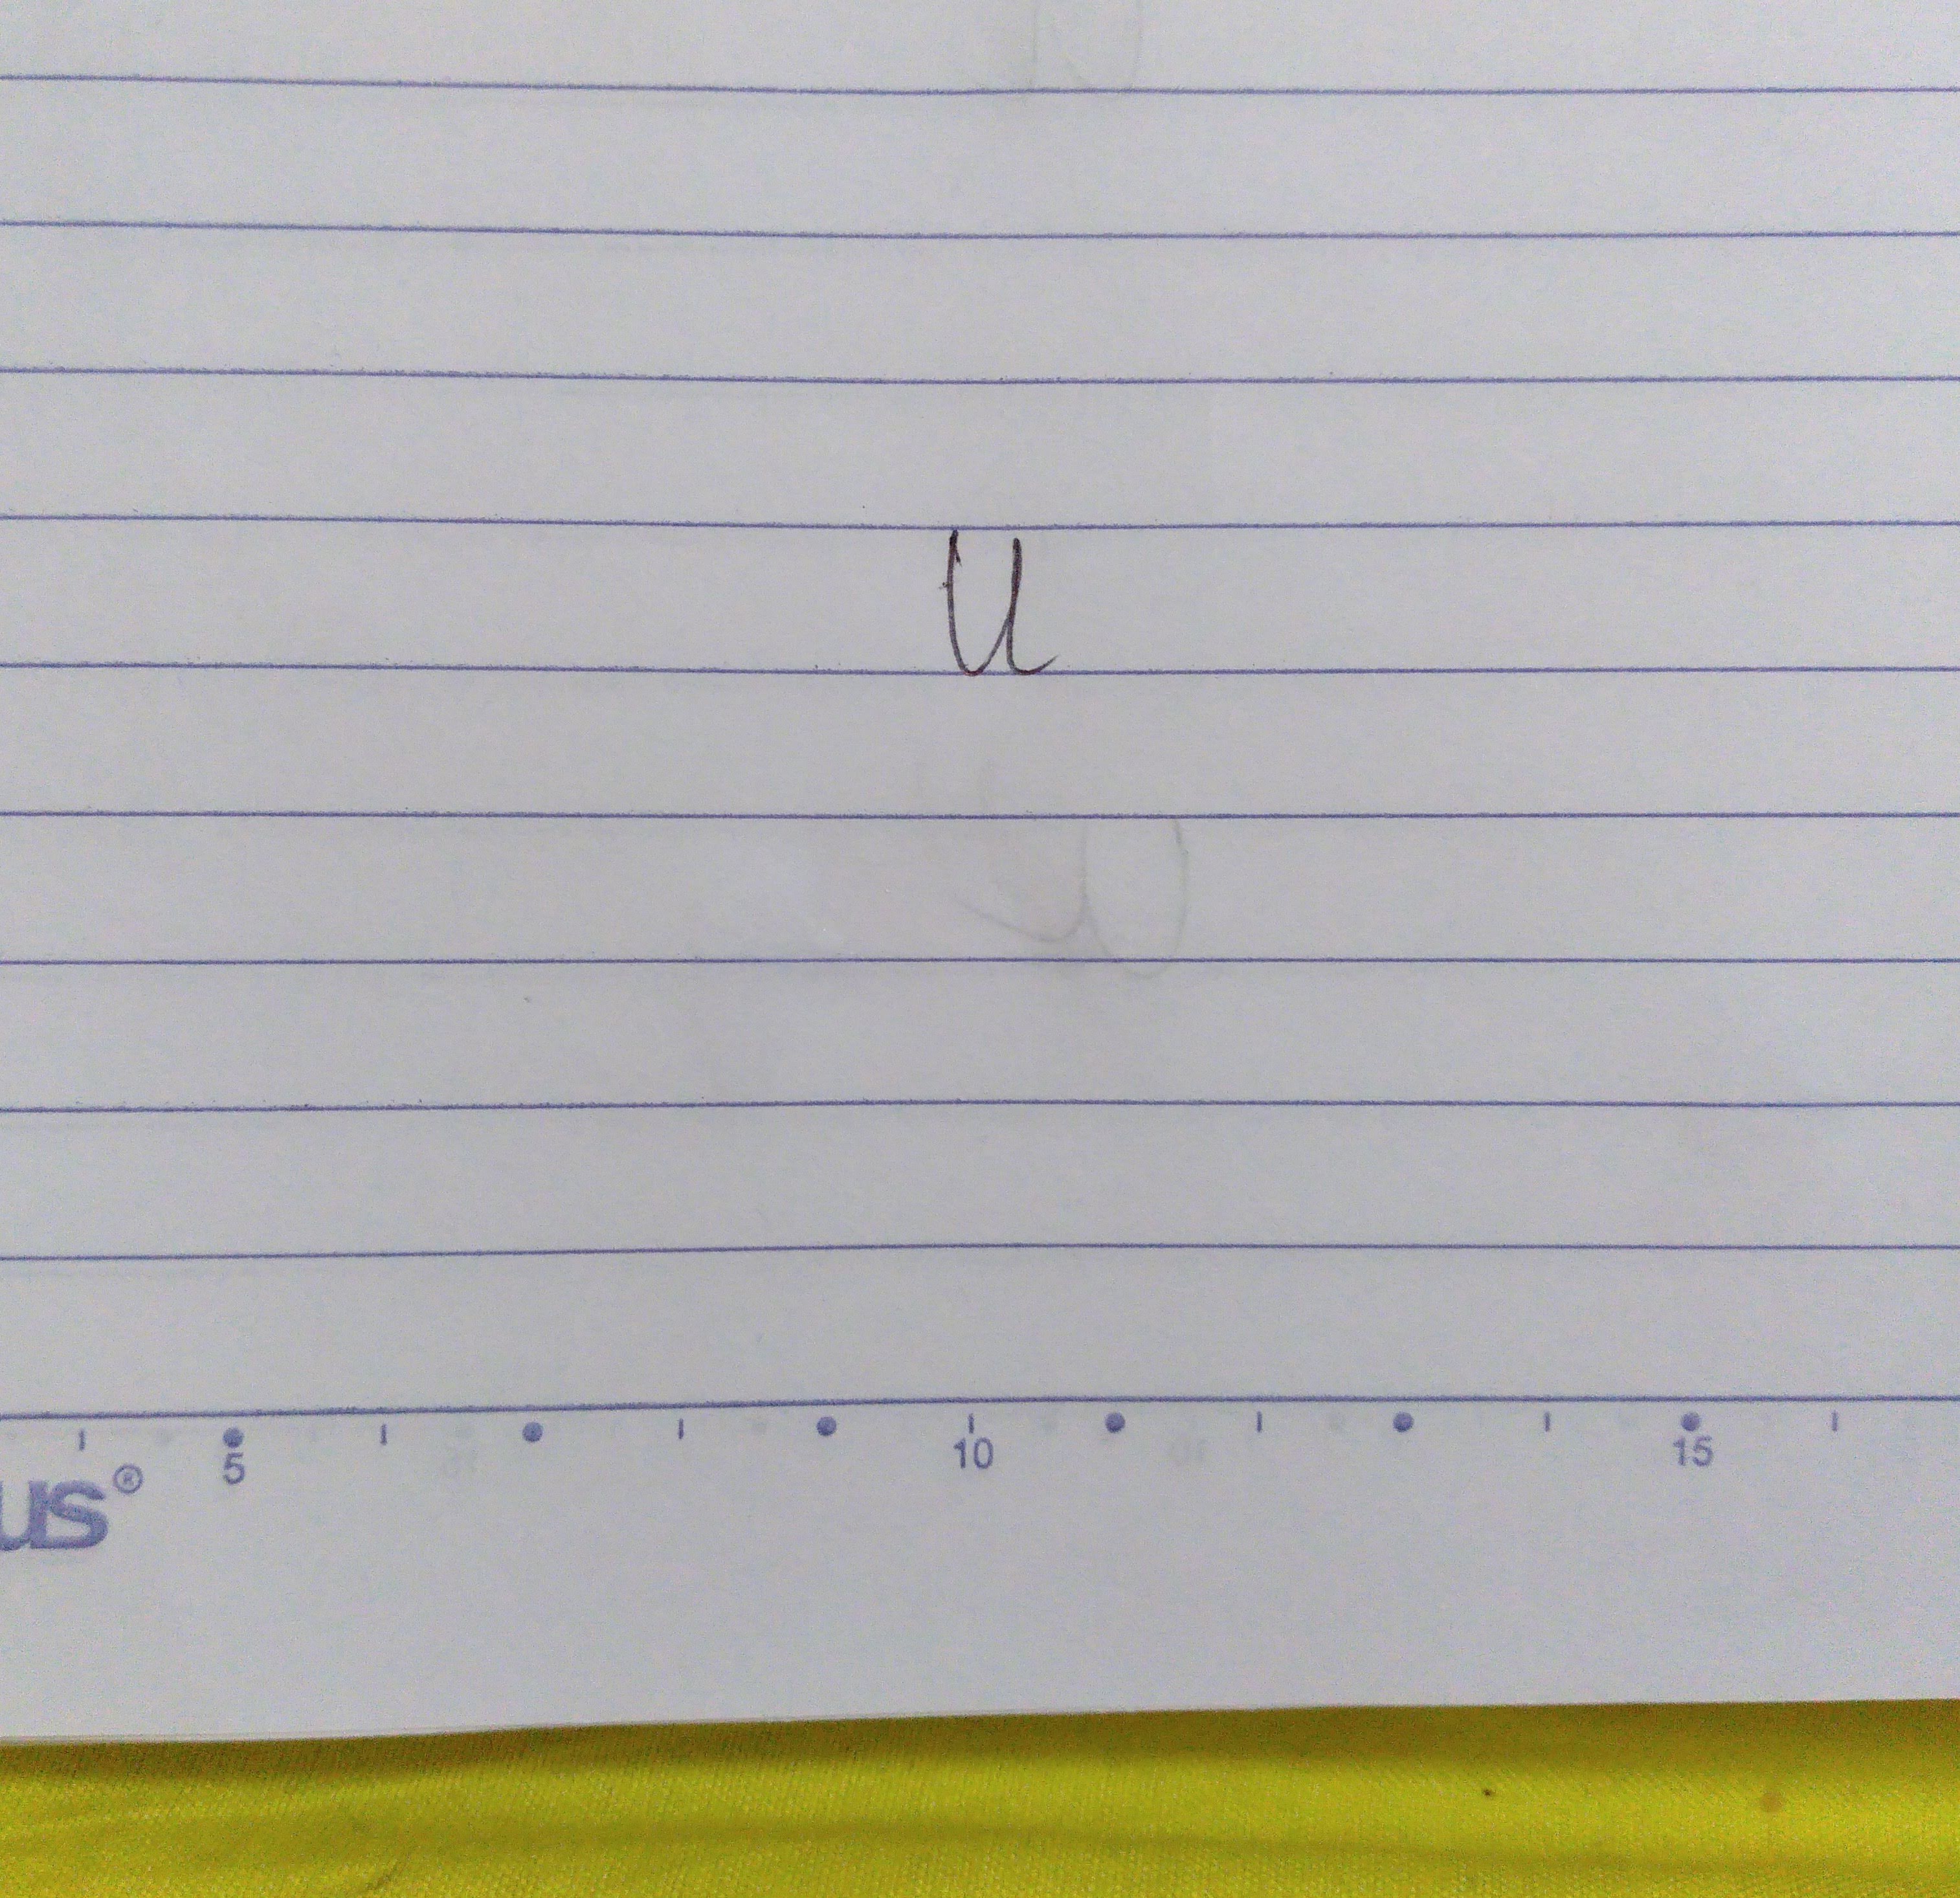 u
5 10 15
us®